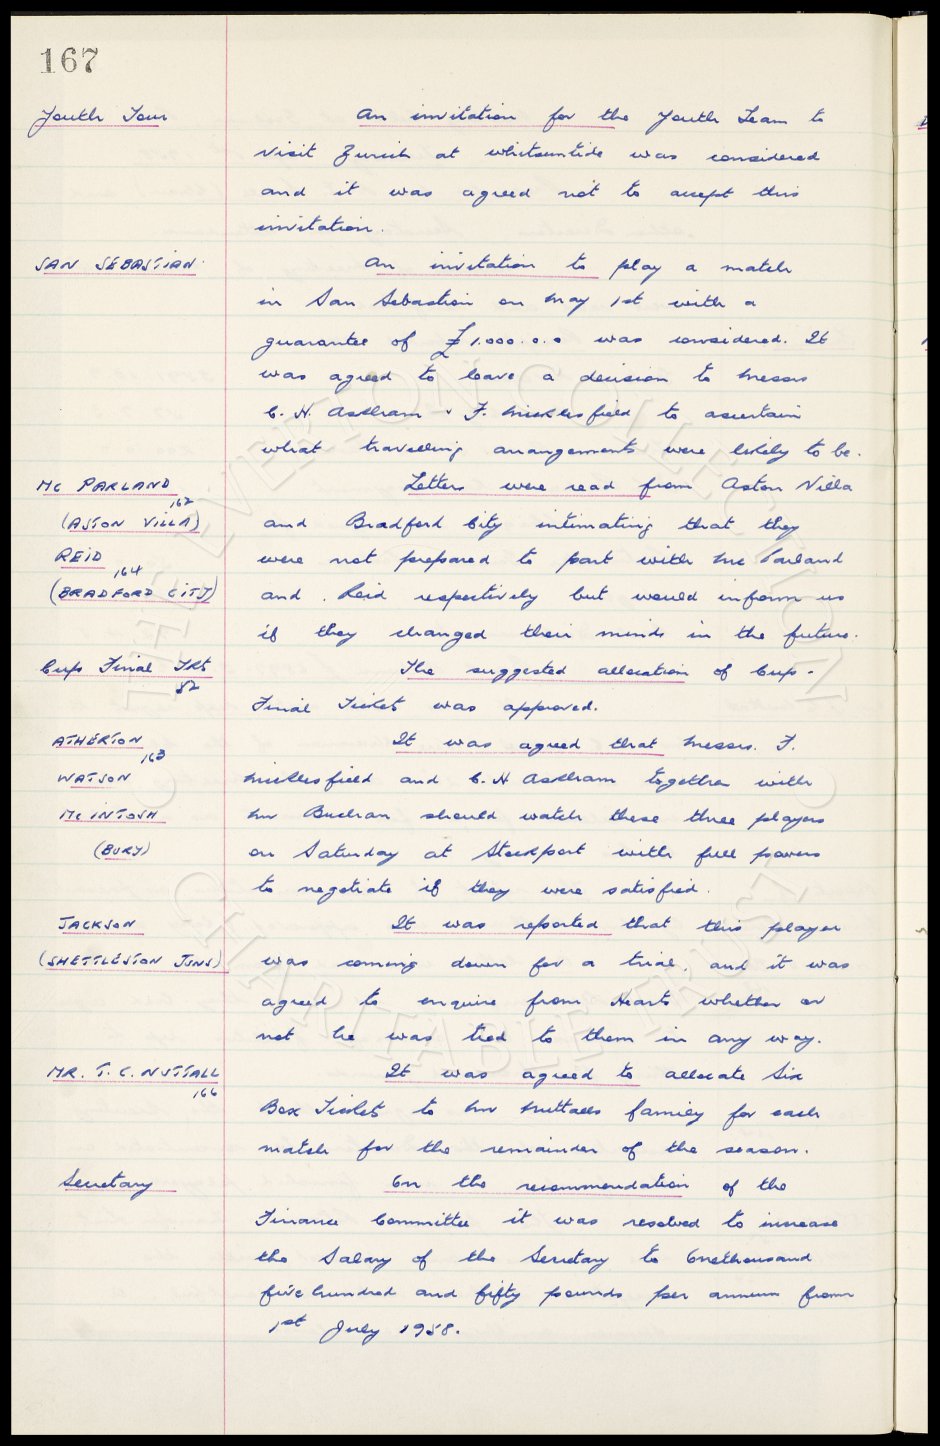 167
Youth Tour An invitation for the Youth Team to
visit Zurich at whitsuntide was considered
and it was agreed not to accept this
invitation.
SAN SEBASTIAN An invitation to play a match
in San Sebastian on May 1st with a
guarantee of £1.000.0.0 was considered. It
was agreed to leave a decision to Messrs
C. H. Askham & F. Micklesfield to ascertain
what travelling arrangements were likely to be.
Mc PARLAND Letters were read from Aston Villa
162
(ASTON VILLA) and Bradford City intimating that they
REID were not prepared to part with Mc Parland
164
(BRADFORD CITY) and Reid respectively but would inform us
if they changed their minds in the future.
Cup Final Tkts The suggested allocation of Cup-
82
Final Tickets was approved.
ATHERTON It was agreed that Messrs. F.
163
WATSON Micklesfield and C. H Askham together with
Mc INTOSH Mr Buchan should watch these three players
(BURY) on Saturday at Stockport with full powers
to negotiate if they were satisfied.
JACKSON It was reported that this player
(SHETTLESTON JUNS) was coming down for a trial, and it was
agreed to enquire from Hearts whether or
not he was tied to them in any way.
MR. T. C. NUTTALL It was agreed to allocate Six
166
Box Tickets to Mr Nuttalls family for each
match for the remainder of the season.
Secretary On the recommendation of the
Finance Committee it was resolved to increase
the Salary of the Secretary to Onethousand
five hundred and fifty pounds per annum from
1st July 1958.
THE EVERTON COLLECTION
CHARITABLE TRUST